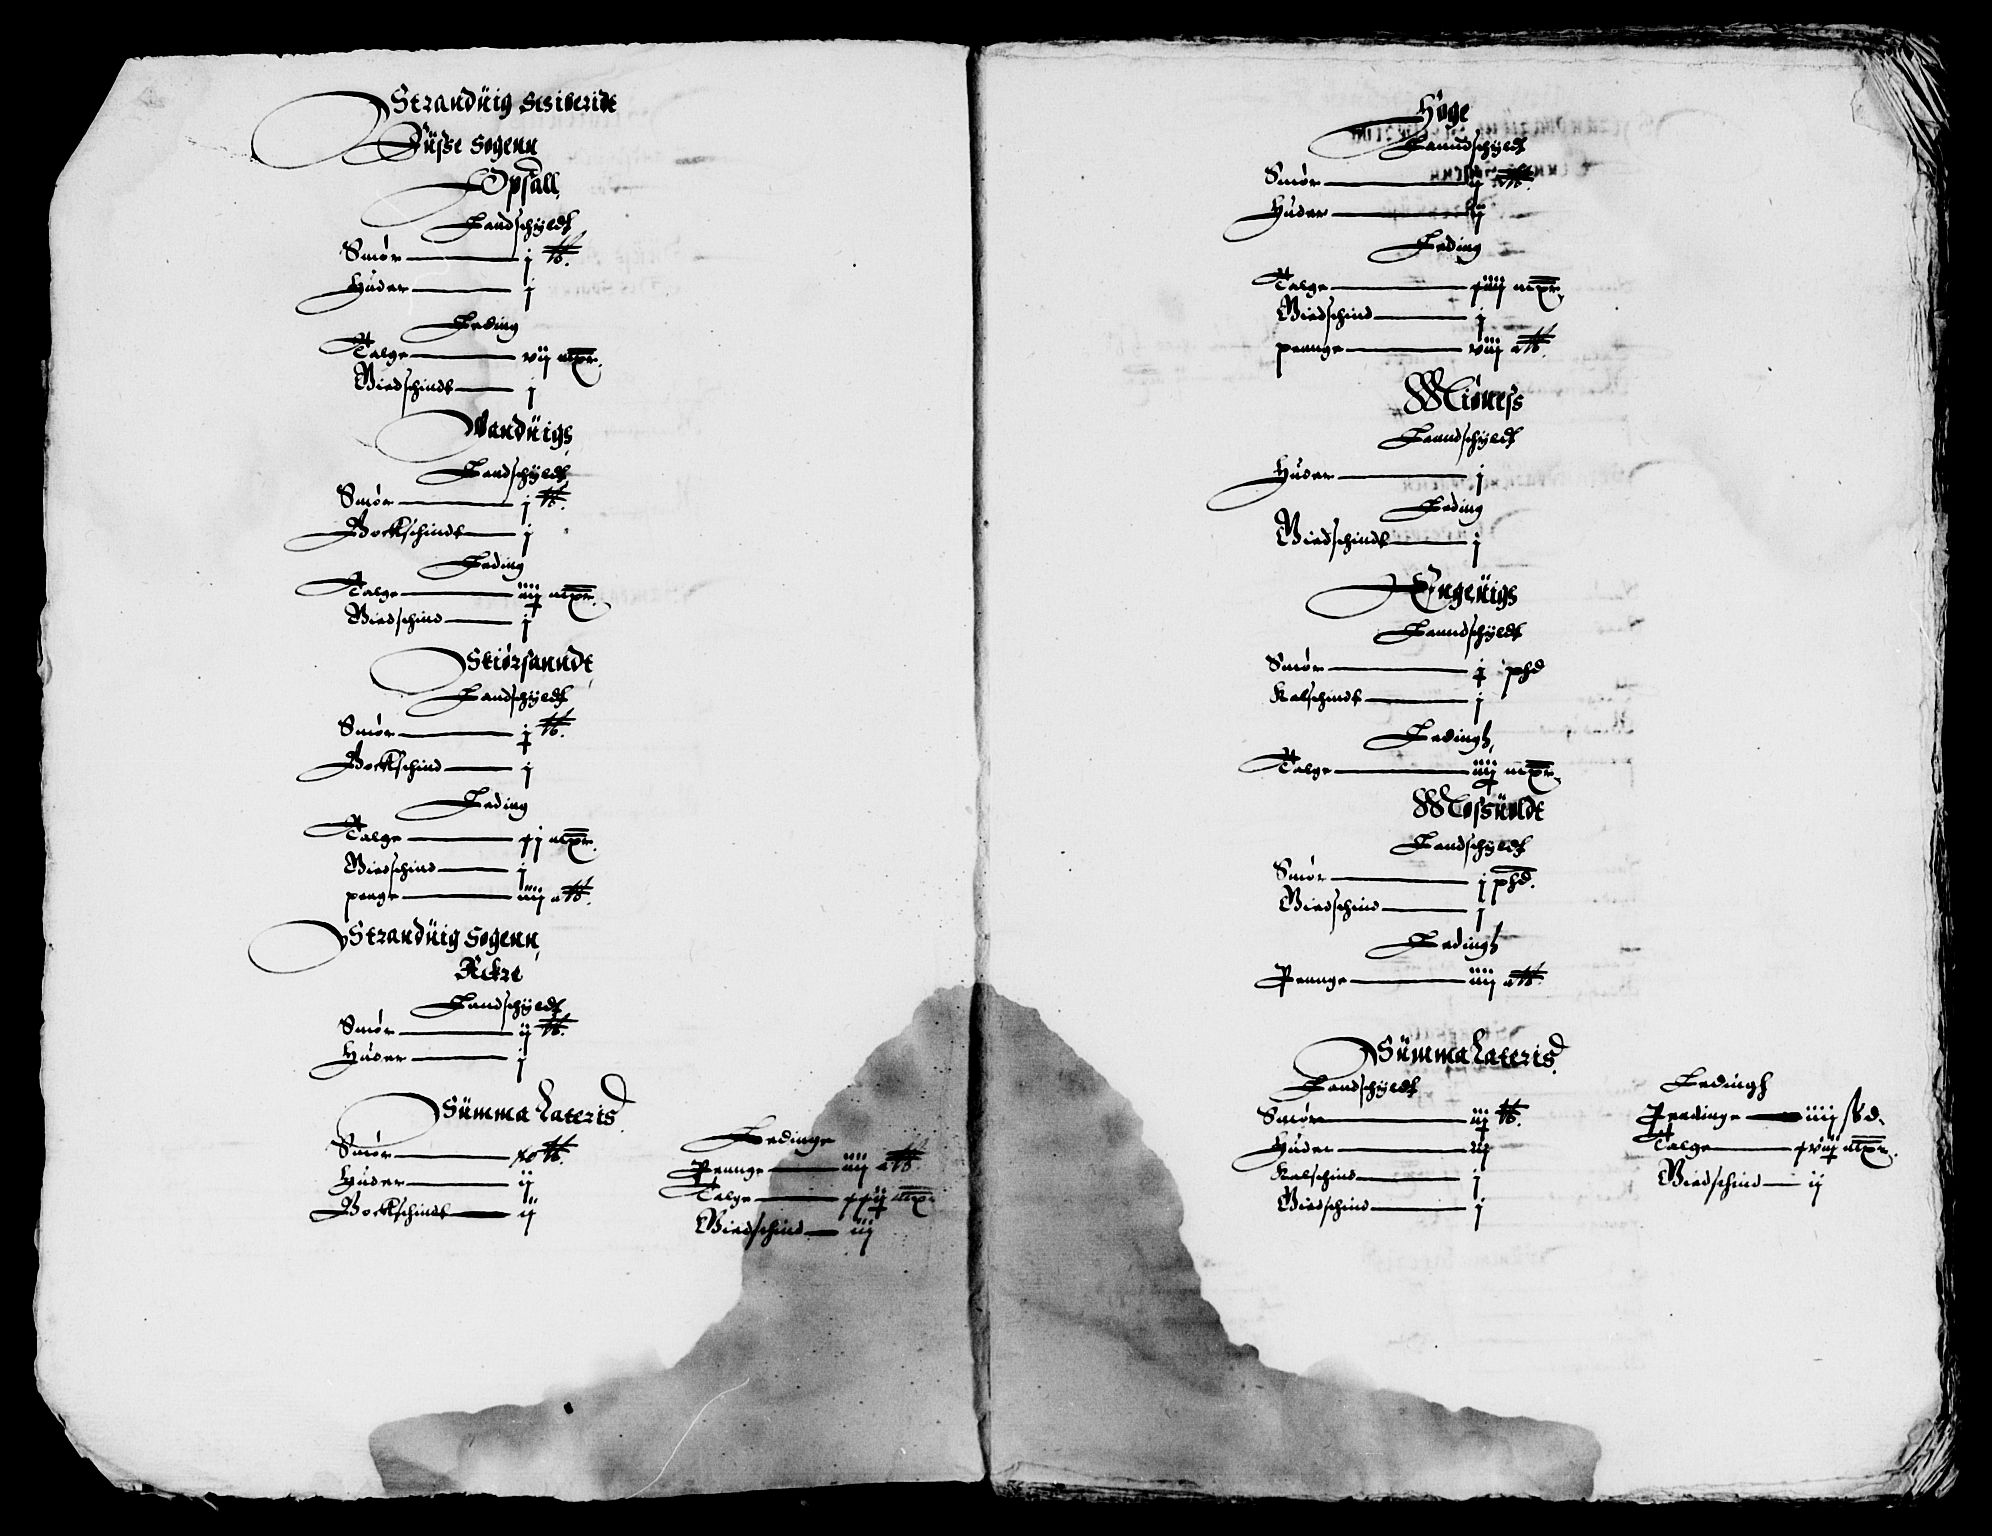 Strandüig Schiberidt
Füsse Sogenn
Opsall
Landschyldt
Smør j ℔.
Huder j
Leding
Talge vij mpr.
Viedschindt j
Vandüigs
Landschyldt
Smør j ℔.
Bockschindt j
Leding
Talge iiij mpr.
Viedschind j
Skiørsanndt
Landschyldt
Smør j ℔.
Bockschind j
Leding
Talge xj mpr.
Viedschind j
penge iiij a℔.
Strandüig Sogenn
Ackre
Landschyldt
Smør ij ℔.
Huder j
Sümma Lateris
Smør ℔.
Huder ij
Bockschindt ij
Ledinge
Pennge iiij a℔.
Talge xxij mpr
Viedschind iij
Høge
Lanndschyldt
Smør ij ℔.
Huder ij
Leding
Talge xiiij mpr.
Viedschind j
pennge viij a℔.
Miøness
Lanndschyldt
Huder j
Leding
Viedschindt j
Engeüigs
Lanndschyldt
Smør j phd
Kalschindt j
Ledingh
Talge iiij mpr.
Mossüoldt
Landschyldt
Smør j phd.
Viedschind j
Ledingh
Pennge iiij a℔.
Sümma Lateris
Landschyldt
Smør iij ℔.
Huder iij
Kalschind j
Viedschind j
Ledingh
Pendinge iiij ßd.
Talge xviij mpr.
Viedschind ij